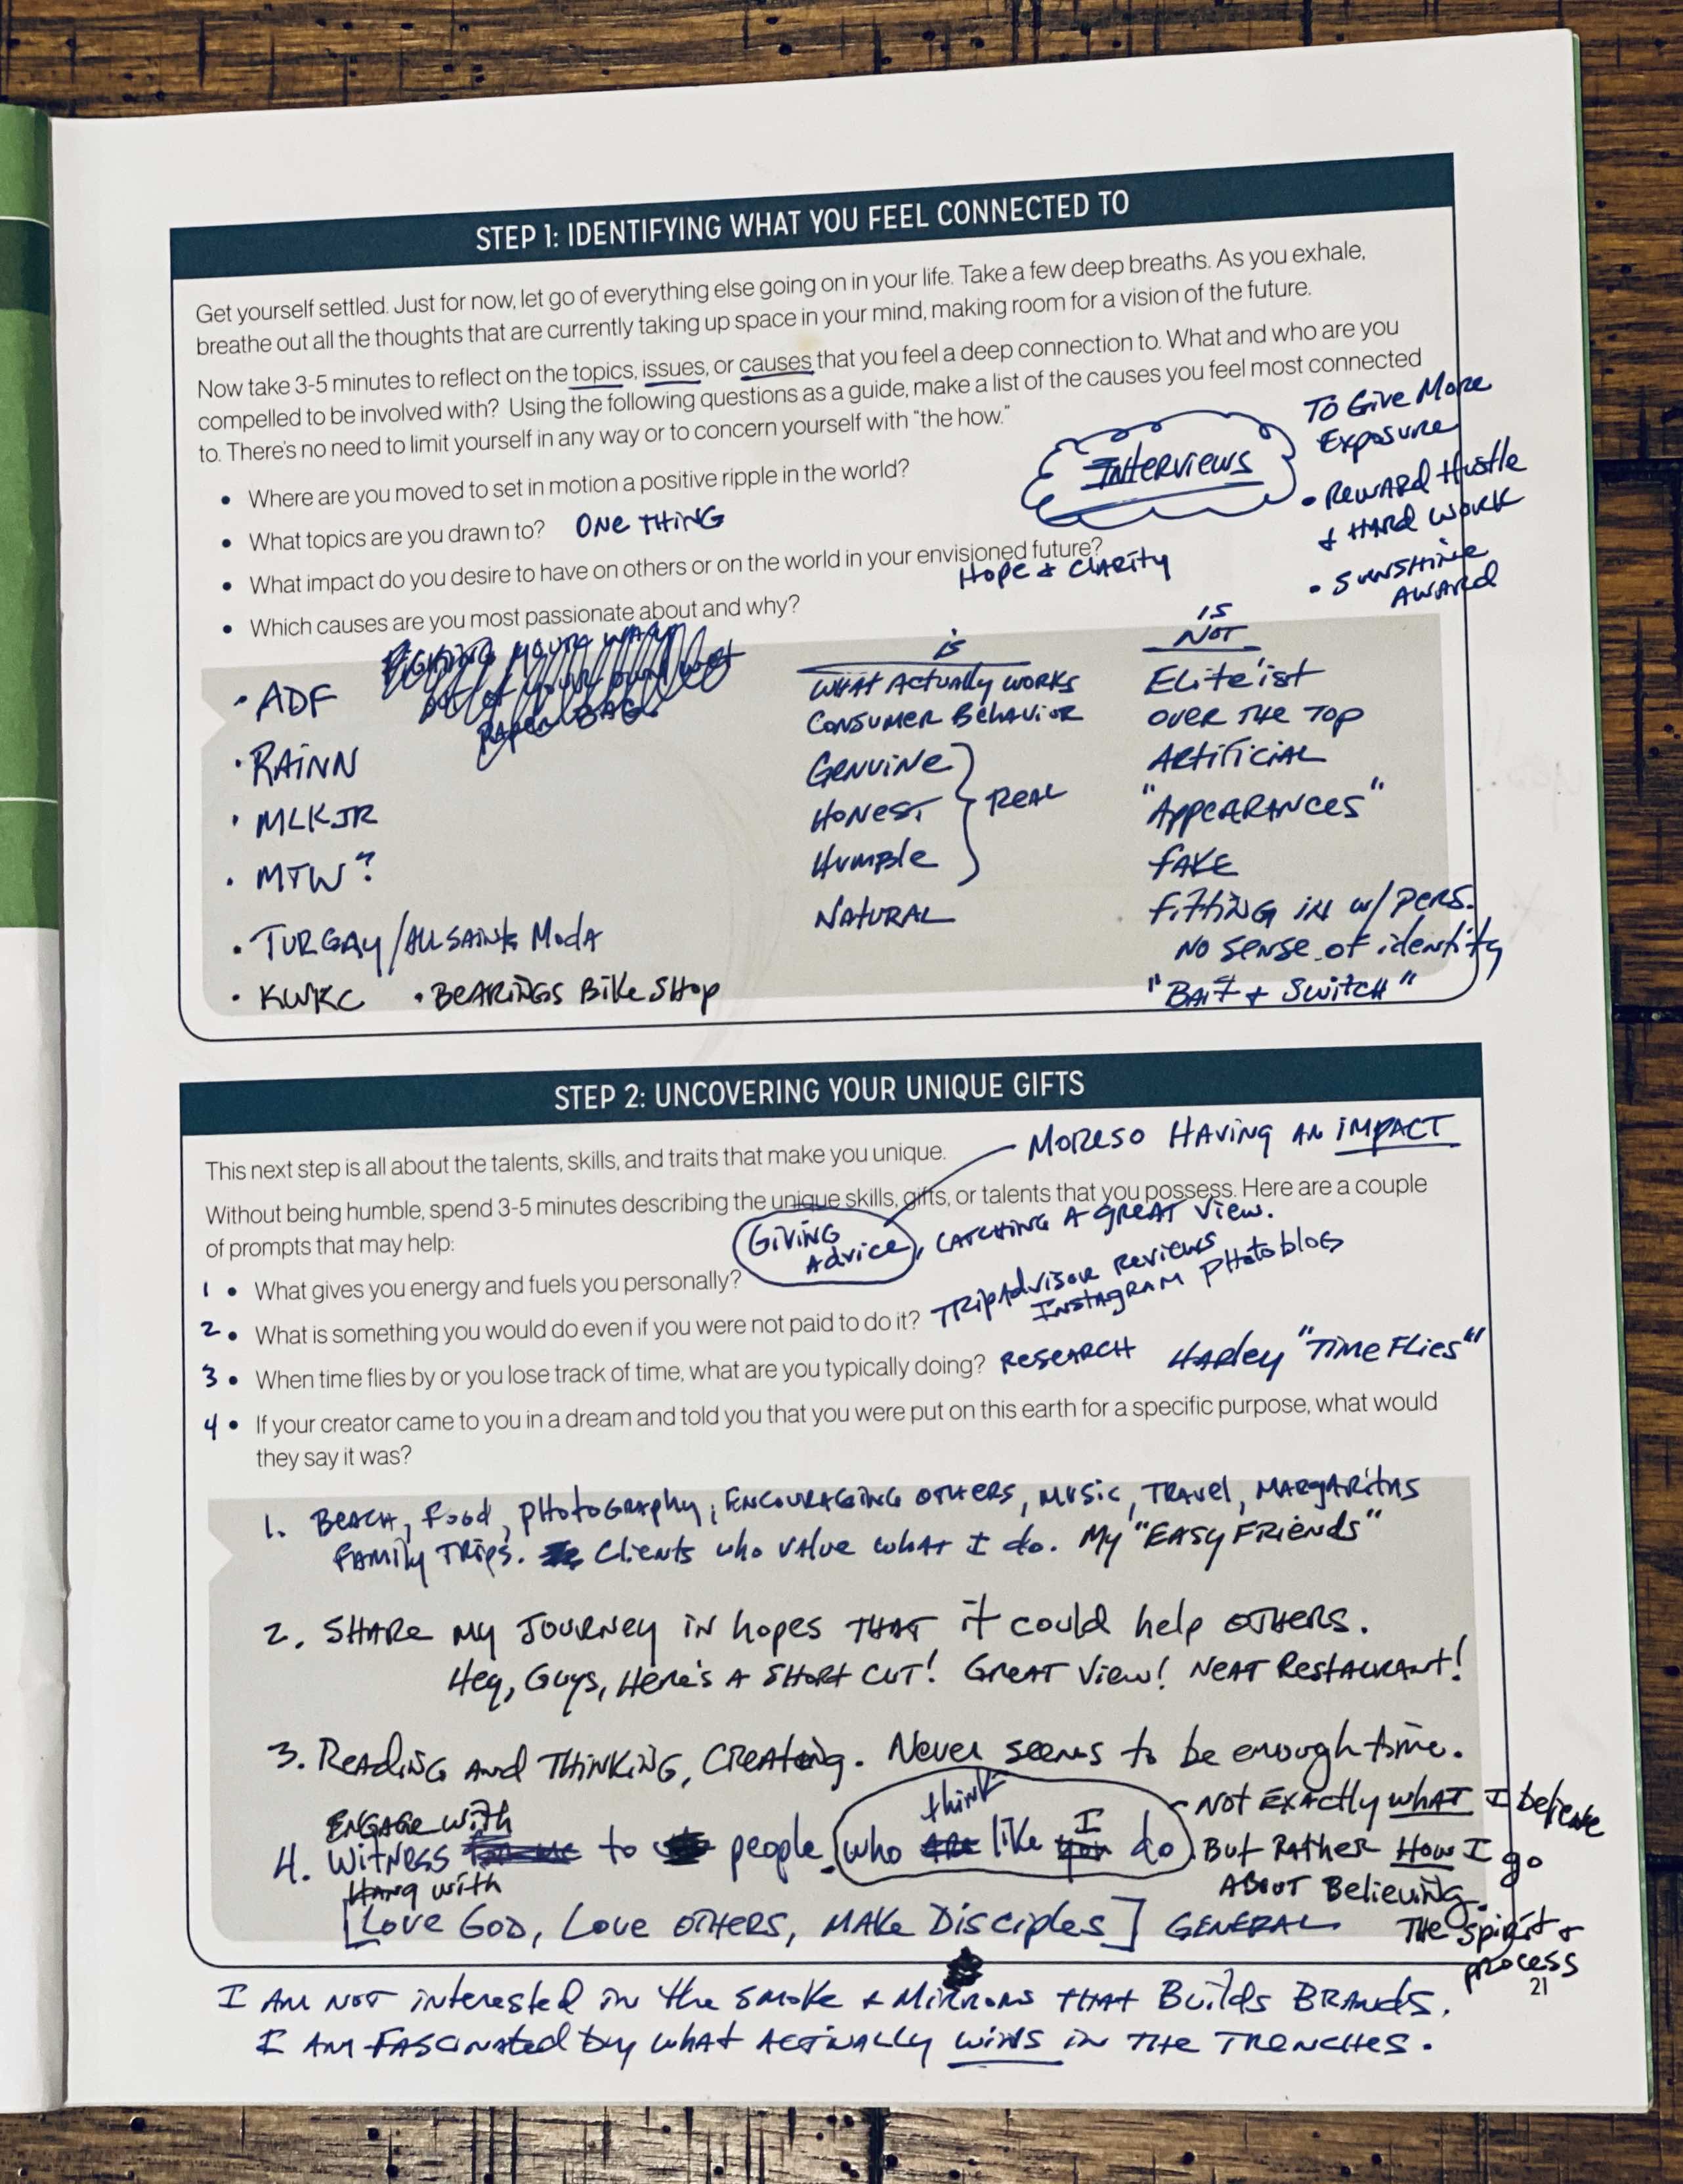 STEP 1: IDENTIFYING WHAT YOU FEEL CONNECTED TO
Get yourself settled. Just for now, let go of everything else going on in your life. Take a few deep breaths. As you exhale,
breathe out all the thoughts that are currently taking up space in your mind, making room for a vision of the future.
Now take 3-5 minutes to reflect on the topics, issues, or causes that you feel a deep connection to. What and who are you
compelled to be involved with? Using the following questions as a guide, make a list of the causes you feel most connected
to. There's no need to limit yourself in any way or to concern yourself with "the how."
INTERVIEWS
TO GIVE MORE
EXPOSURE
• REWARD HUSTLE
+ HARD WORK
• SUNSHINE
AWARD
• Where are you moved to set in motion a positive ripple in the world?
• What topics are you drawn to? ONE THING
• What impact do you desire to have on others or on the world in your envisioned future?
HOPE + CLARITY
• Which causes are you most passionate about and why?
• ADF
• RAINN
• MLKJR
• MTW?
• TURGAY/ALLSAINTS MODA
• KWKC • BEARINGS BIKE SHOP
IS
WHAT ACTUALLY WORKS
CONSUMER BEHAVIOR
GENUINE
HONEST
HUMBLE
REAL
NATURAL
IS
NOT
ELITE'IST
OVER THE TOP
ARTIFICIAL
"APPEARANCES"
FAKE
FITTING IN W/ PERS.
NO SENSE OF IDENTITY
"BAIT + SWITCH"
STEP 2: UNCOVERING YOUR UNIQUE GIFTS
MORESO HAVING AN IMPACT
This next step is all about the talents, skills, and traits that make you unique.
Without being humble, spend 3-5 minutes describing the unique skills, gifts, or talents that you possess. Here are a couple
of prompts that may help:
GIVING
ADVICE, CATCHING A GREAT VIEW.
1 • What gives you energy and fuels you personally?
2 • What is something you would do even if you were not paid to do it? TRIPADVISOR REVIEWS
INSTAGRAM PHOTOBLOG
3 • When time flies by or you lose track of time, what are you typically doing? RESEARCH HARLEY "TIME FLIES"
4 • If your creator came to you in a dream and told you that you were put on this earth for a specific purpose, what would
they say it was?
1. BEACH, FOOD, PHOTOGRAPHY, ENCOURAGING OTHERS, MUSIC, TRAVEL, MARGARITAS
FAMILY TRIPS. CLIENTS WHO VALUE WHAT I DO. MY "EASY FRIENDS"
2. SHARE MY JOURNEY IN HOPES THAT IT COULD HELP OTHERS.
HEY, GUYS, HERE'S A SHORT CUT! GREAT VIEW! NEAT RESTAURANT!
3. READING AND THINKING, CREATING. NEVER SEEMS TO BE ENOUGH TIME.
ENGAGE WITH
think I
4. WITNESS to people who are like you do
HANG WITH
NOT EXACTLY WHAT I believe
BUT RATHER HOW I go
ABOUT BELIEVING.
THE Spirit +
process
[LOVE GOD, LOVE OTHERS, MAKE DISCIPLES] GENERAL
21
I AM NOT INTERESTED IN THE SMOKE + MIRRORS THAT BUILDS BRANDS.
I AM FASCINATED BY WHAT ACTUALLY WINS IN THE TRENCHES.